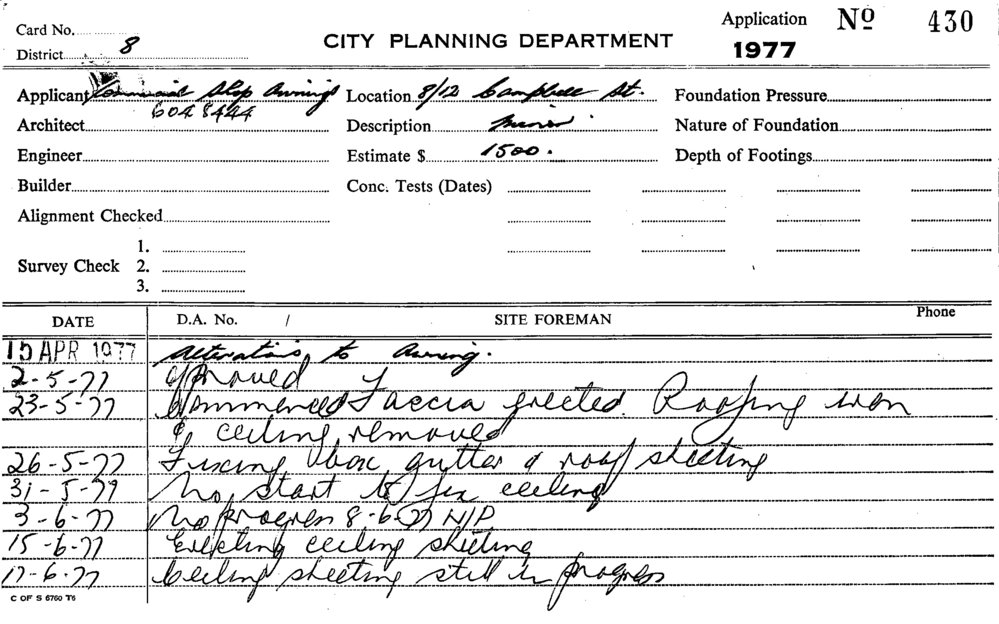 Card No.
District 8
CITY PLANNING DEPARTMENT
Application Nº 430
1977
Applicant Commercial Shop Awnings
6048444
Location 8/12 Campbell St.
Foundation Pressure
Architect
Description Minor
Nature of Foundation
Engineer
Estimate $ 1500.
Depth of Footings
Builder
Conc. Tests (Dates)
Alignment Checked
Survey Check
1.
2.
3.
DATE D.A. No. / SITE FOREMAN Phone
15 APR 1977 Alterations to Awning.
2-5-77 Approved
23-5-77 Commenced Faccia erected. Roofing iron
& ceiling removed
26-5-77 Fixing box gutter & roof sheeting
31-5-77 No start to fix ceiling
3-6-77 No progress 8-6-77 N/P
15-6-77 Erecting ceiling sheeting
17-6-77 Ceiling sheeting still in progress
C OF S 6760 T6